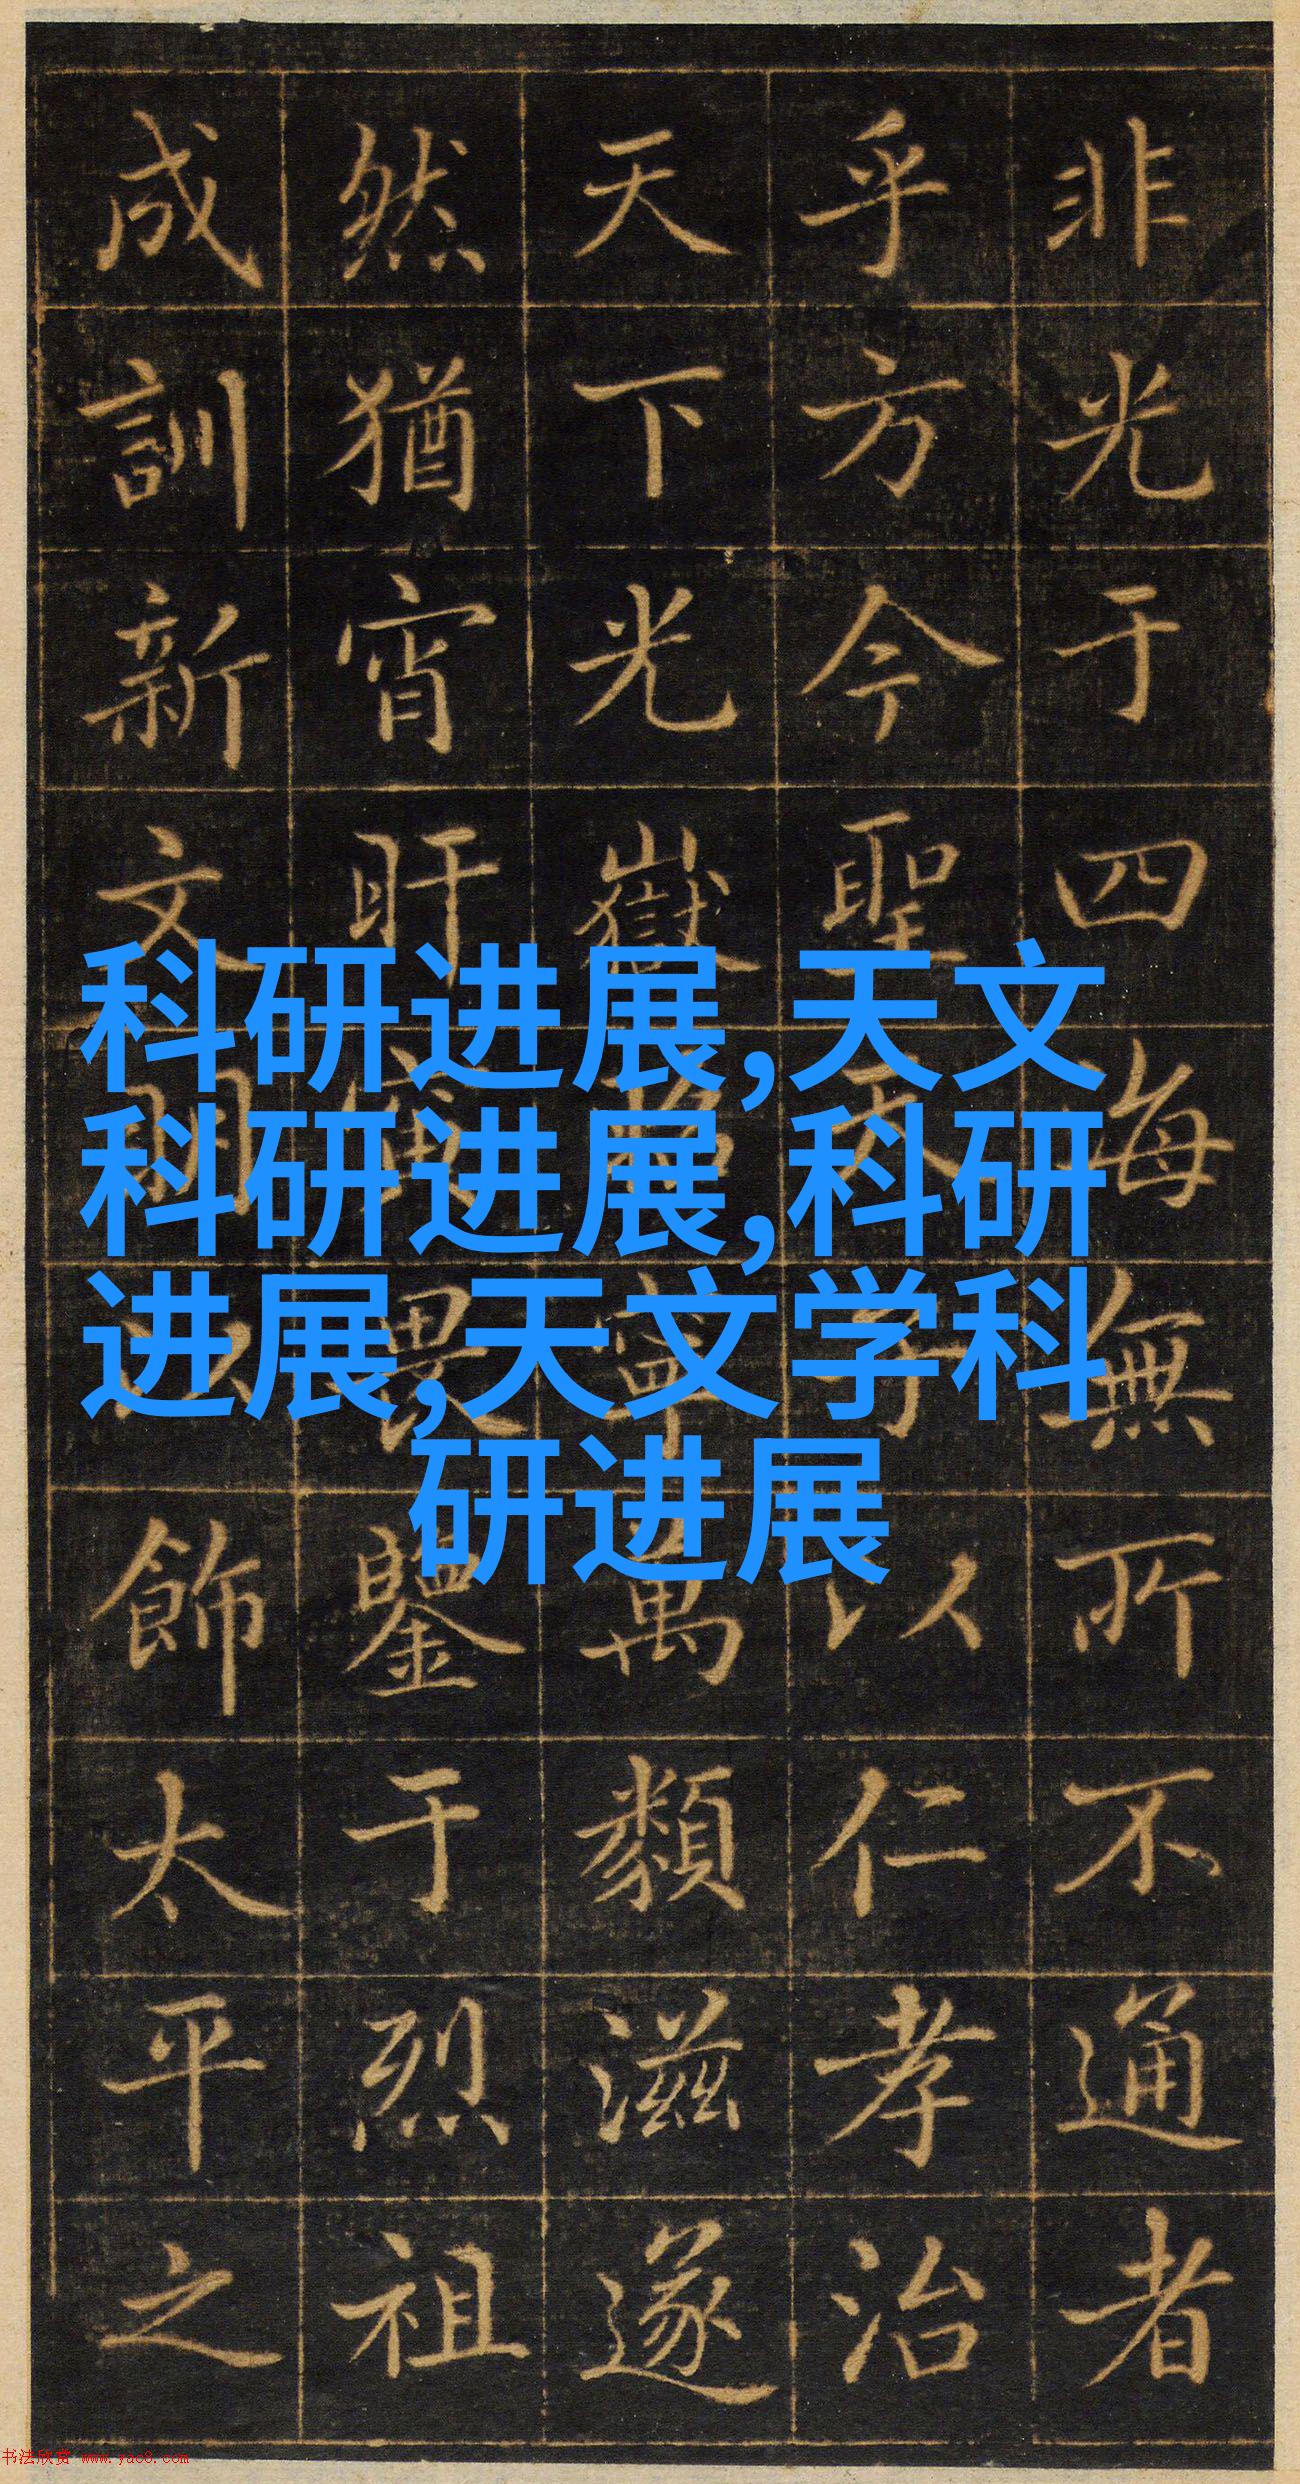 非光于四海無所不通者
乎方今聖天子以仁孝治
天下光嶽寧萬類滋遂
然猶宵旰寅畏鑒于烈祖
成訓新文明以飾太平之
科研进展,天文
科研进展,科研
进展,天文学科
研进展
书法欣赏 www.yac8.com